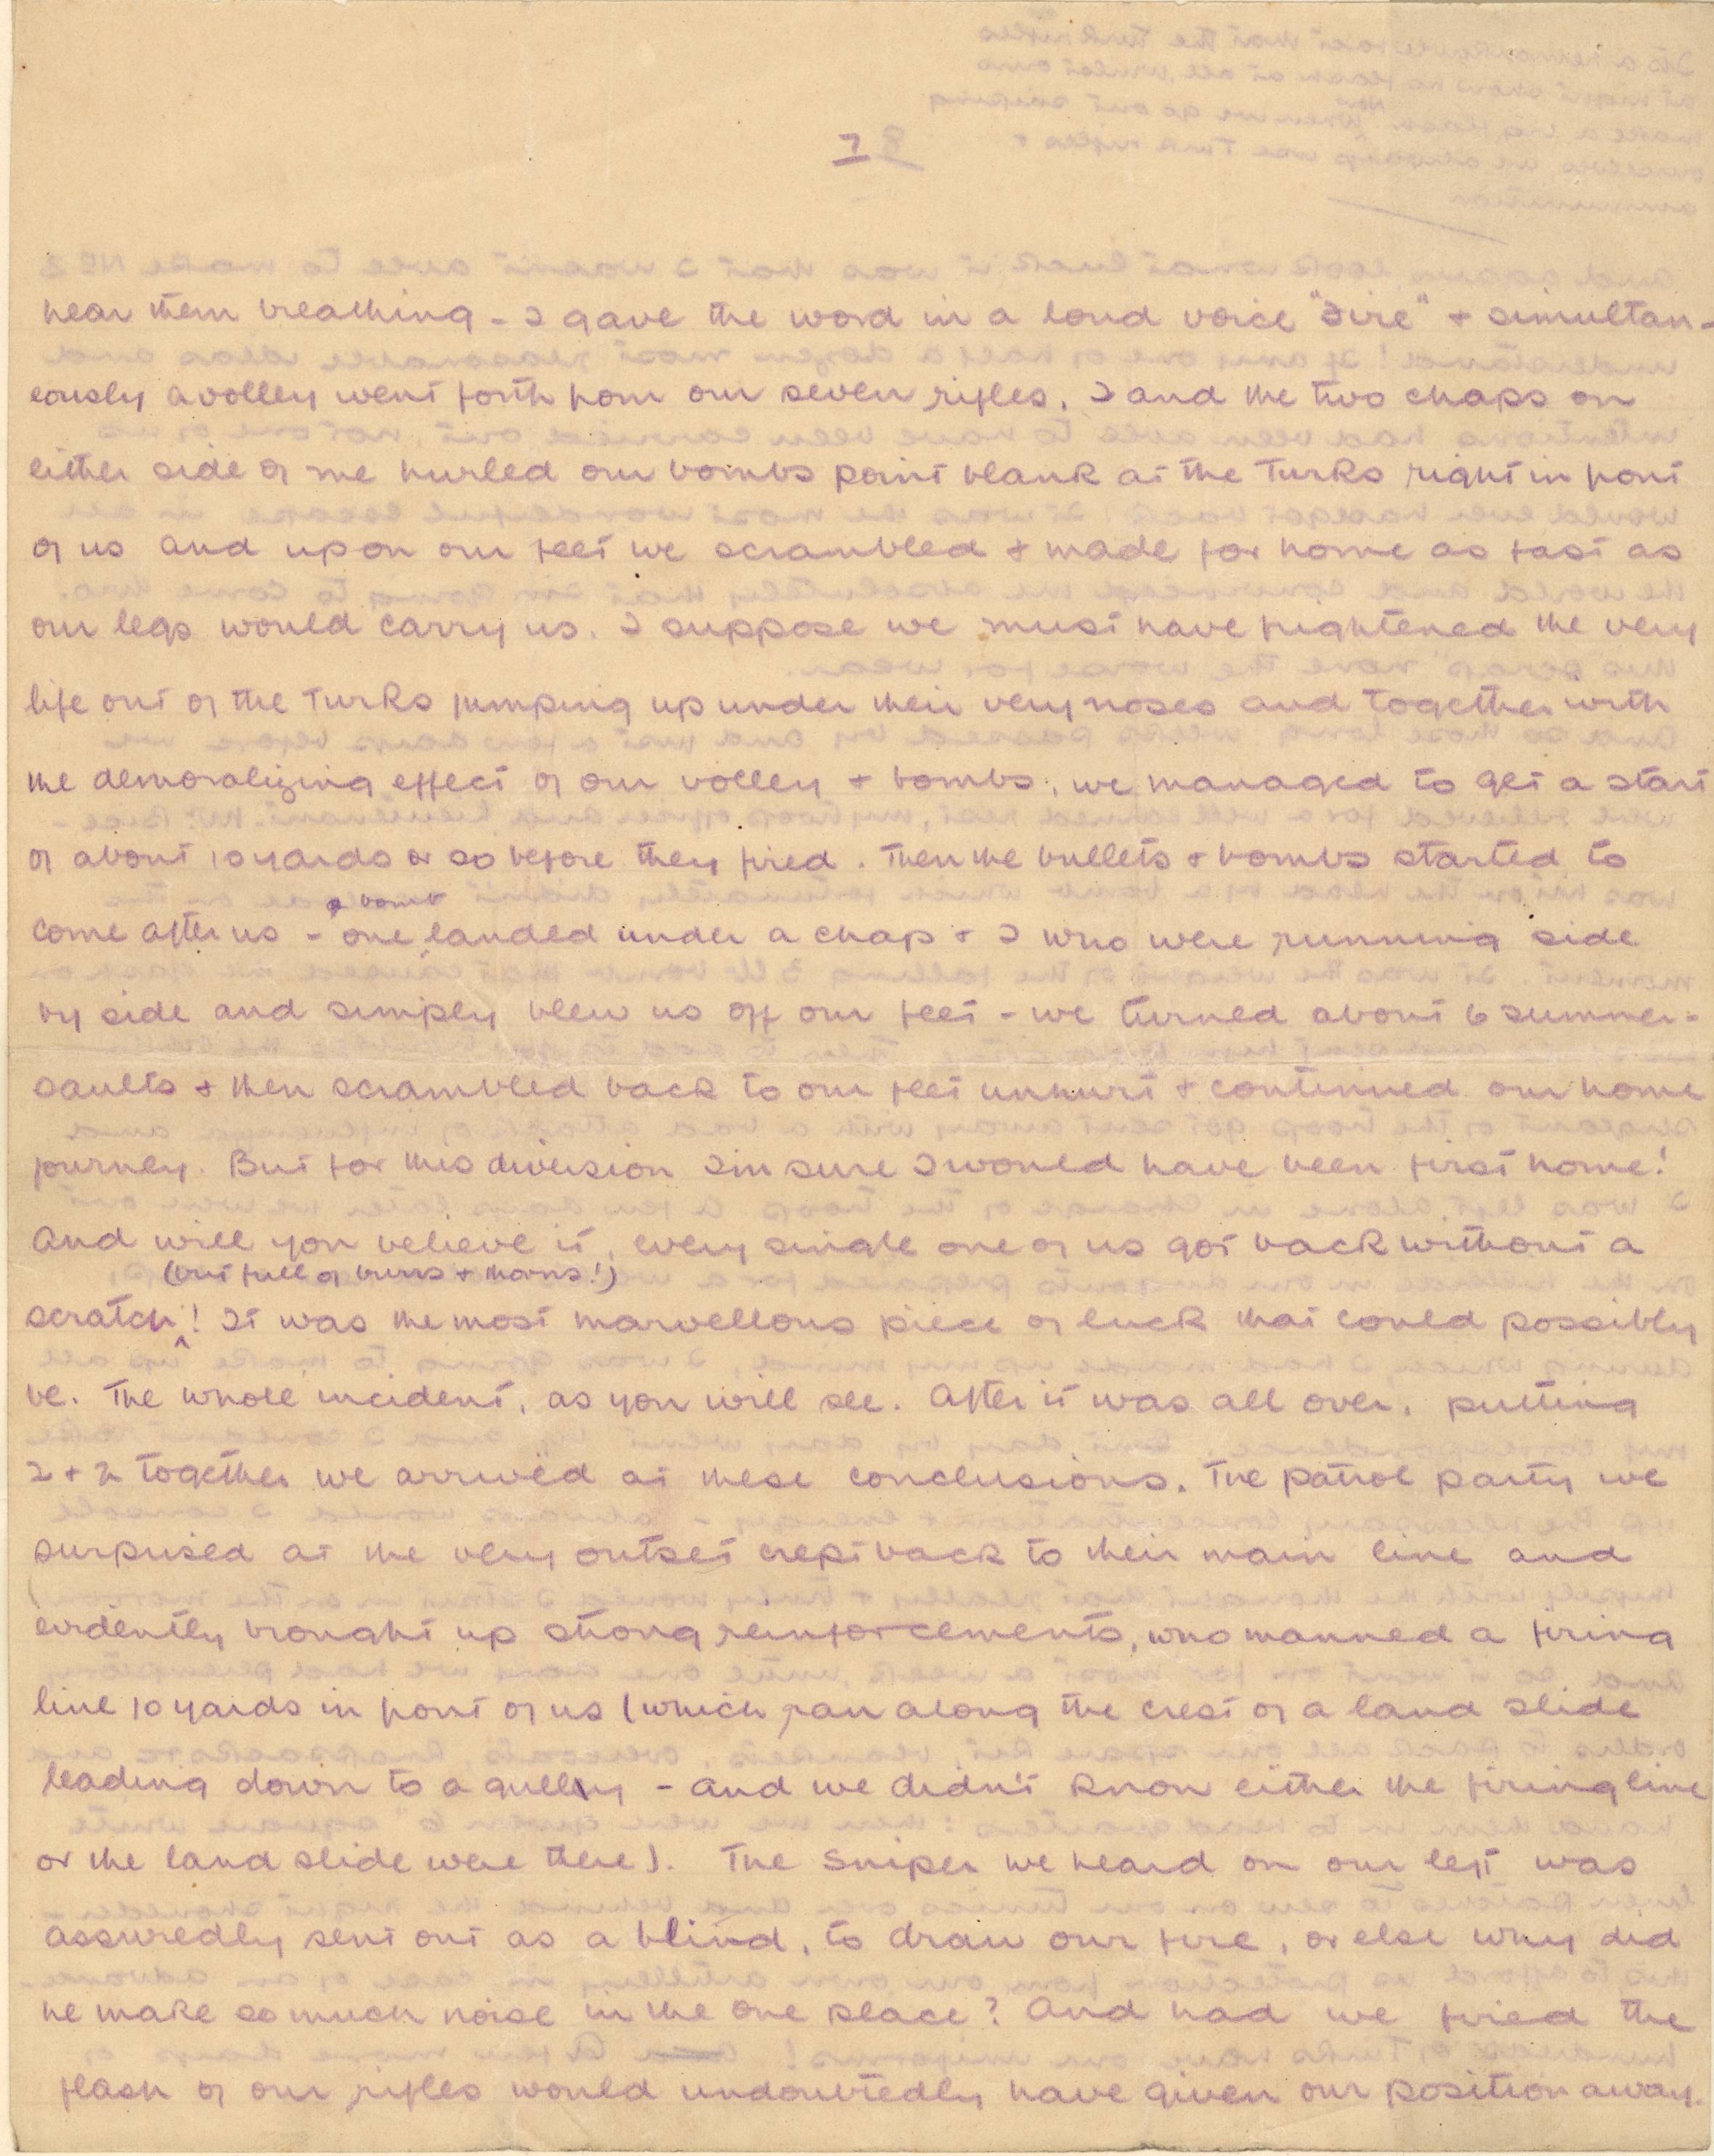 7
hear them breathing - I gave the word in a loud voice "Fire" + simultan-
eously a volley went forth from our seven rifles. I and the two chaps on
either side of me hurled our bombs point blank at the Turks right in front
of us and upon our feet we scrambled + made for home as fast as
our legs would carry us. I suppose we must have frightened the very
life out of the Turks jumping up under their very noses and together with
the demoralizing effect of our volley + bombs, we managed to get a start
of about 10 yards or so before they fired. Then the bullets + bombs started to
bomb
come after us - one landed under a chap + I who were running side
by side and simply blew us off our feet - we turned about 6 summer-
saults + then scrambled back to our feet unhurt + continued our home
journey. But for this diversion I'm sure I would have been first home!
And will you believe it, every single one of us got back without a
(but full of burrs + thorns!)
scratch! It was the most marvellous piece of luck that could possibly
be. The whole incident, as you will see. After it was all over, putting
2 + 2 together we arrived at these conclusions. The patrol party we
surprised at the very outset crept back to their main line and
evidently brought up strong reinforcements, who manned a firing
line 10 yards in front of us (which ran along the crest of a land slide
leading down to a gully - and we didn't know either the firing line
or the land slide were there). The Sniper we heard on our left was
assuredly sent out as a blind, to draw our fire, or else why did
he make so much noise in the one place? And had we fired the
flash of our rifles would undoubtedly have given our position away.